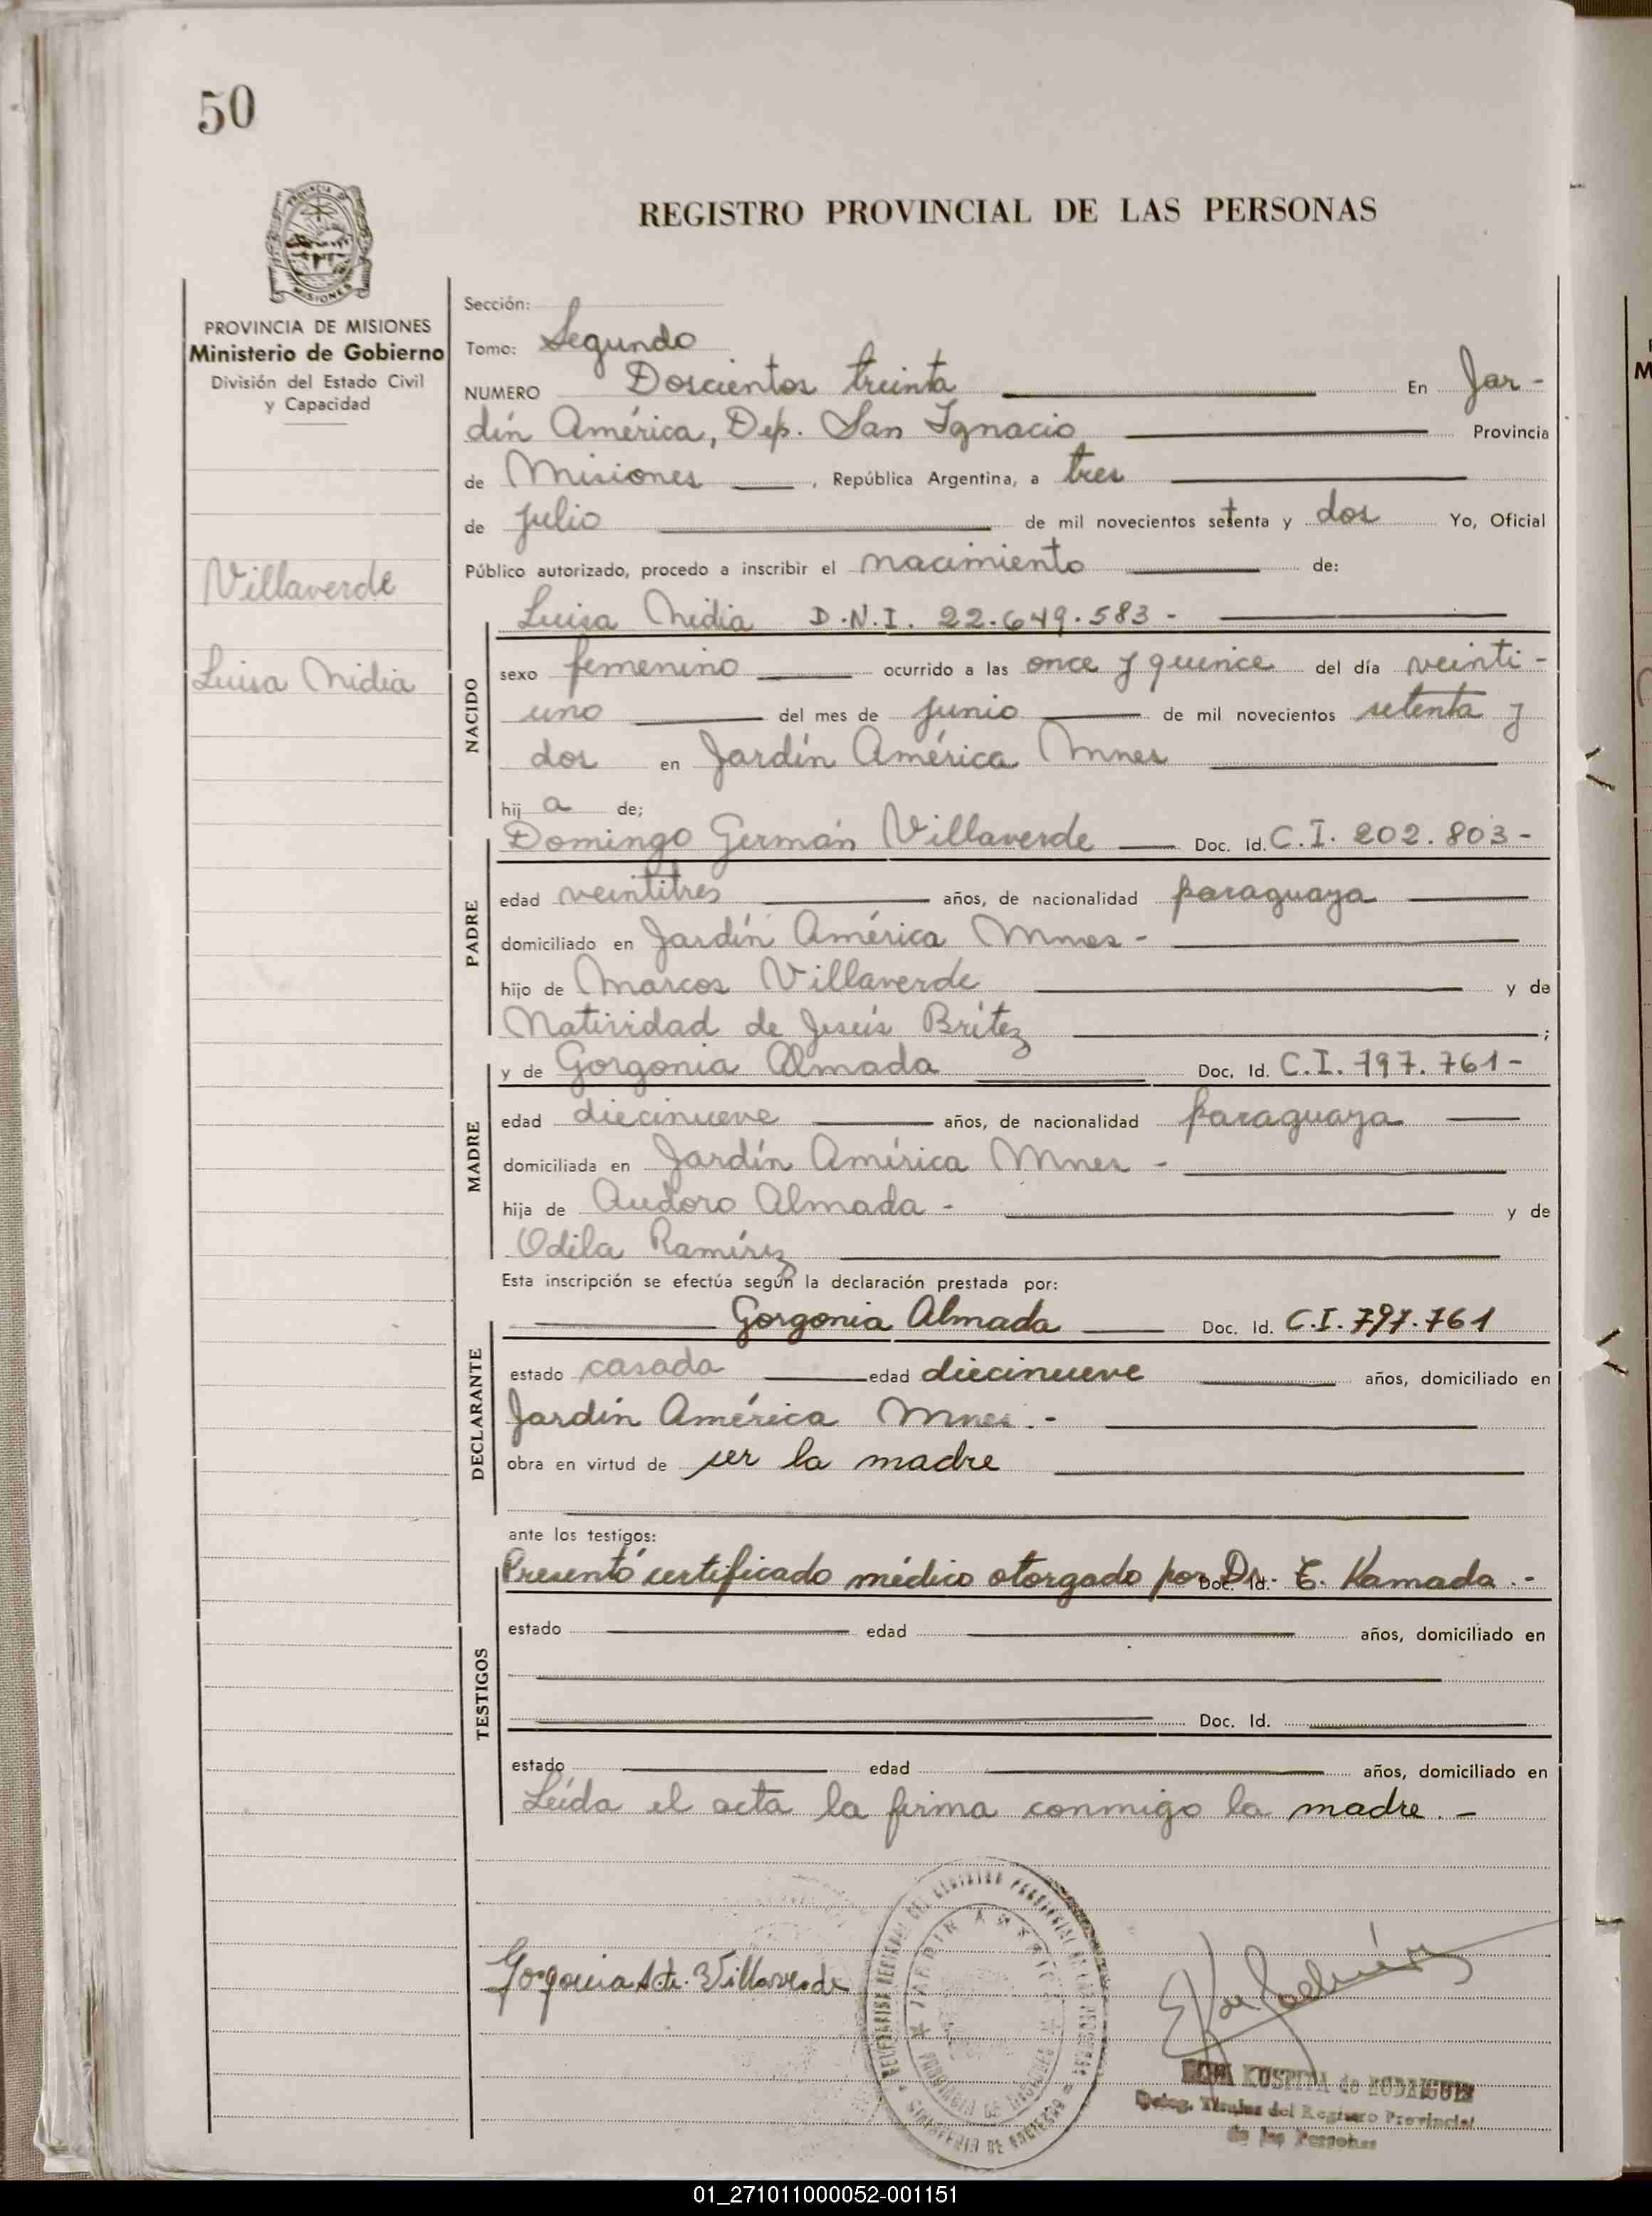 50
REGISTRO PROVINCIAL DE LAS PERSONAS
PROVINCIA DE MISIONES
Ministerio de Gobierno
División del Estado Civil
y Capacidad
Villaverde
Luisa Nidia
Sección:
Tomo: Segundo
NUMERO Doscientos treinta En Jar-
dín América, Dep. San Ignacio Provincia
de Misiones, República Argentina, a tres
de julio de mil novecientos setenta y dos Yo, Oficial
Público autorizado, procedo a inscribir el nacimiento de:
Luisa Nidia D.N.I. 22.649.583-
NACIDO
sexo femenino ocurrido a las once y quince del día veinti-
uno del mes de junio de mil novecientos setenta y
dos en Jardín América Mnes
hij a de;
PADRE
Domingo Germán Villaverde Doc. Id. C.I. 202.803-
edad veintitres años, de nacionalidad paraguaya
domiciliado en Jardín América Mnes-
hijo de Marcos Villaverde y de
Natividad de Jesús Brítez ;
MADRE
y de Gorgonia Almada Doc. Id. C.I. 797.761-
edad diecinueve años, de nacionalidad paraguaya
domiciliada en Jardín América Mnes-
hija de Audoro Almada- y de
Odila Ramírez
Esta inscripción se efectúa según la declaración prestada por:
DECLARANTE
Gorgonia Almada Doc. Id. C.I. 797.761
estado casada edad diecinueve años, domiciliado en
Jardín América Mnes.-
obra en virtud de ser la madre
ante los testigos:
TESTIGOS
Presentó certificado médico otorgado por Doc. Id. Dr. E. Kamada.-
estado edad años, domiciliado en
Doc. Id.
estado edad años, domiciliado en
Leída el acta la firma conmigo la madre.-
Gorgonia Villaverde
KUSPITA de RODRIGUEZ
Deleg. Titular del Registro Provincial
de las Personas
01_271011000052-001151